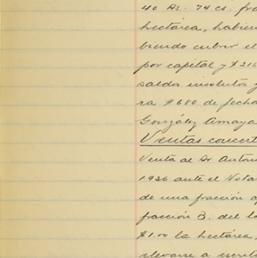 40 As. 74 cs. fra
hectárea, habien
biendo cubrir el
por capital y $215
saldos insolutos y
ra $680 de fecha
González Amaya
Ventas concert
Venta al Dr. Anton
1936 ante el Nota
de una fracción a
fracción B. del lo
$100 la hectárea,
elevarse a escrit